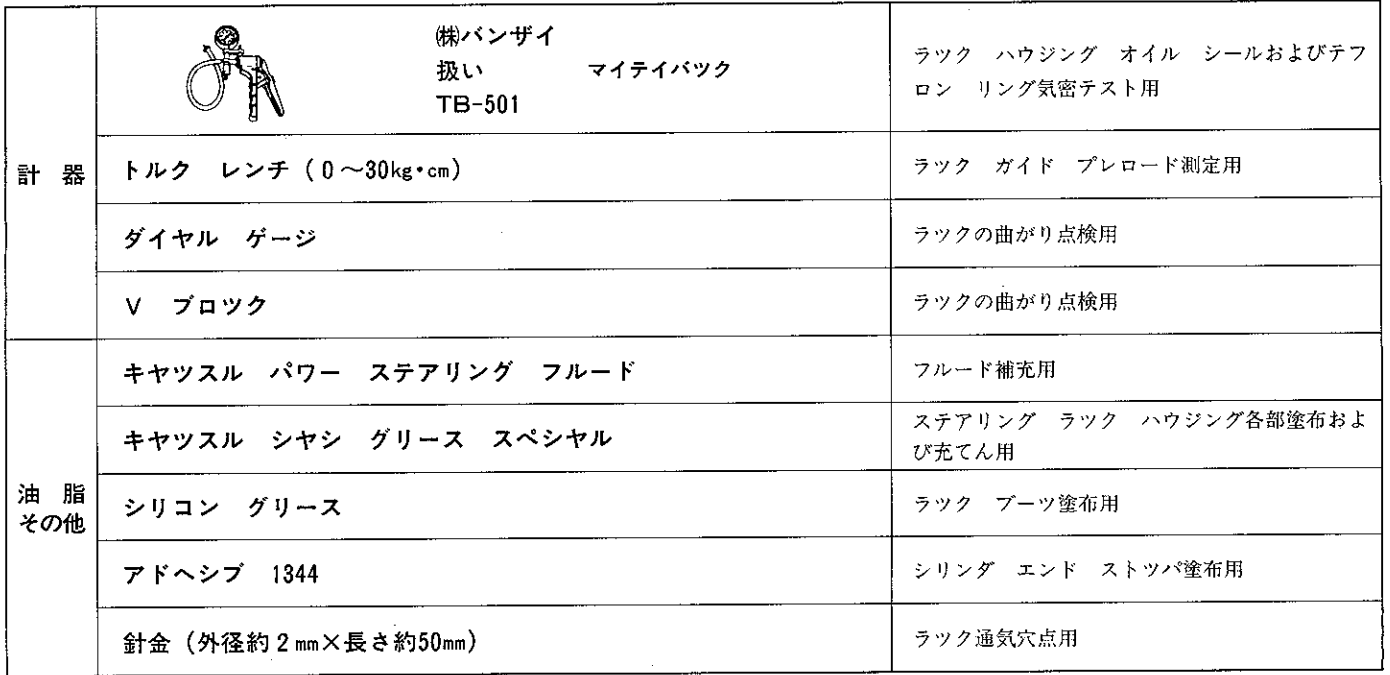 計 器
㈱バンザイ
扱い マイテイバツク
TB-501
ラツク ハウジング オイル シールおよびテフ
ロン リング気密テスト用
トルク レンチ(0~30kg・cm)
ラツク ガイド プレロード測定用
ダイヤル ゲージ
ラツクの曲がり点検用
V ブロツク
ラツクの曲がり点検用
油 脂
その他
キヤツスル パワー ステアリング フルード
フルード補充用
キヤツスル シヤシ グリース スペシヤル
ステアリング ラツク ハウジング各部塗布およ
び充てん用
シリコン グリース
ラツク ブーツ塗布用
アドヘシブ 1344
シリンダ エンド ストツパ塗布用
針金(外径約2mm×長さ約50mm)
ラツク通気穴点用